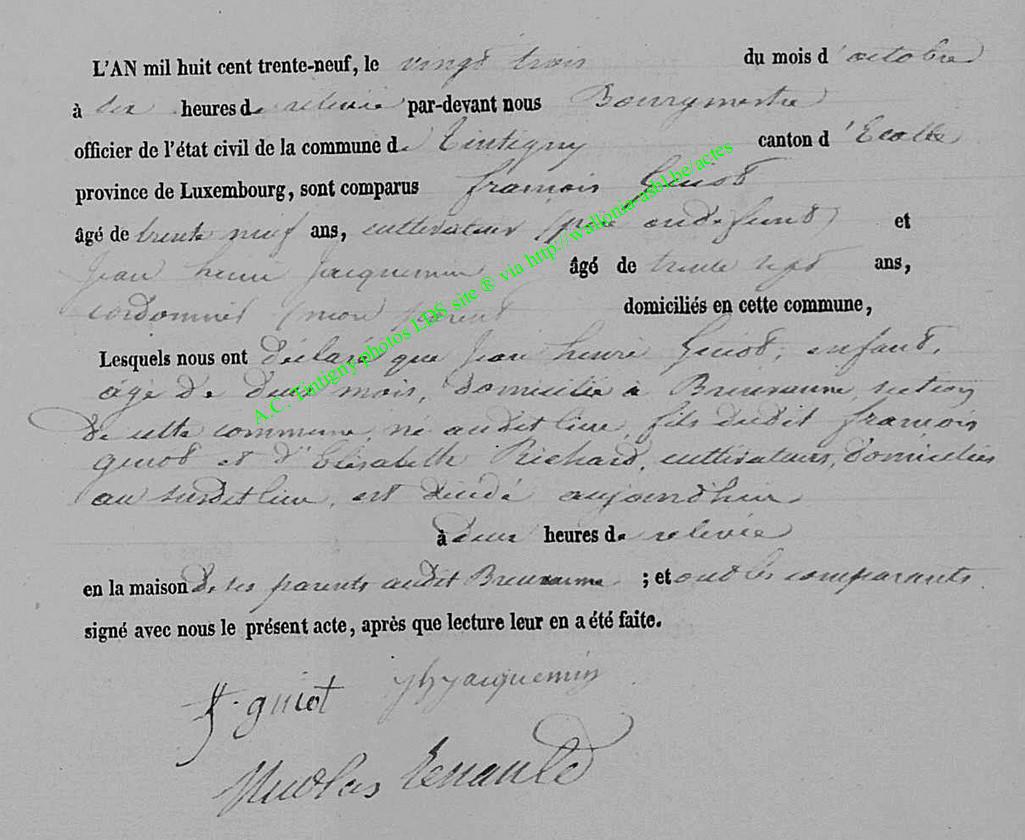 L'AN mil huit cent trente-neuf, le vingt trois du mois d'octobre
à six heures de relevée par-devant nous Bourgmestre
officier de l'état civil de la commune de Tintigny canton d'Etalle
province de Luxembourg, sont comparus françois Guiot
âgé de trente neuf ans, cultivateur père au défunt et
Jean henri Jacquemin âgé de trente sept ans,
cordonnier (non parent domiciliés en cette commune,
Lesquels nous ont déclaré que Jean henri Guiot enfant,
âgé de deux mois, domicilié à Breuvanne, section
de cette commune, né audit lieu, fils dudit françois
guiot et d'Elisabeth Richard, cultivateurs, domiciliés
au susdit lieu, est décédé aujourd'hui
à deux heures de relevée
en la maison de ses parents audit Breuvanne ; et ont les comparants
signé avec nous le présent acte, après que lecture leur en a été faite.
f. guiot jh jacquemin
Nicolas Renauld
A.C. Tintigny photos LDS site ® via http://wallonia-asbl.be/actes